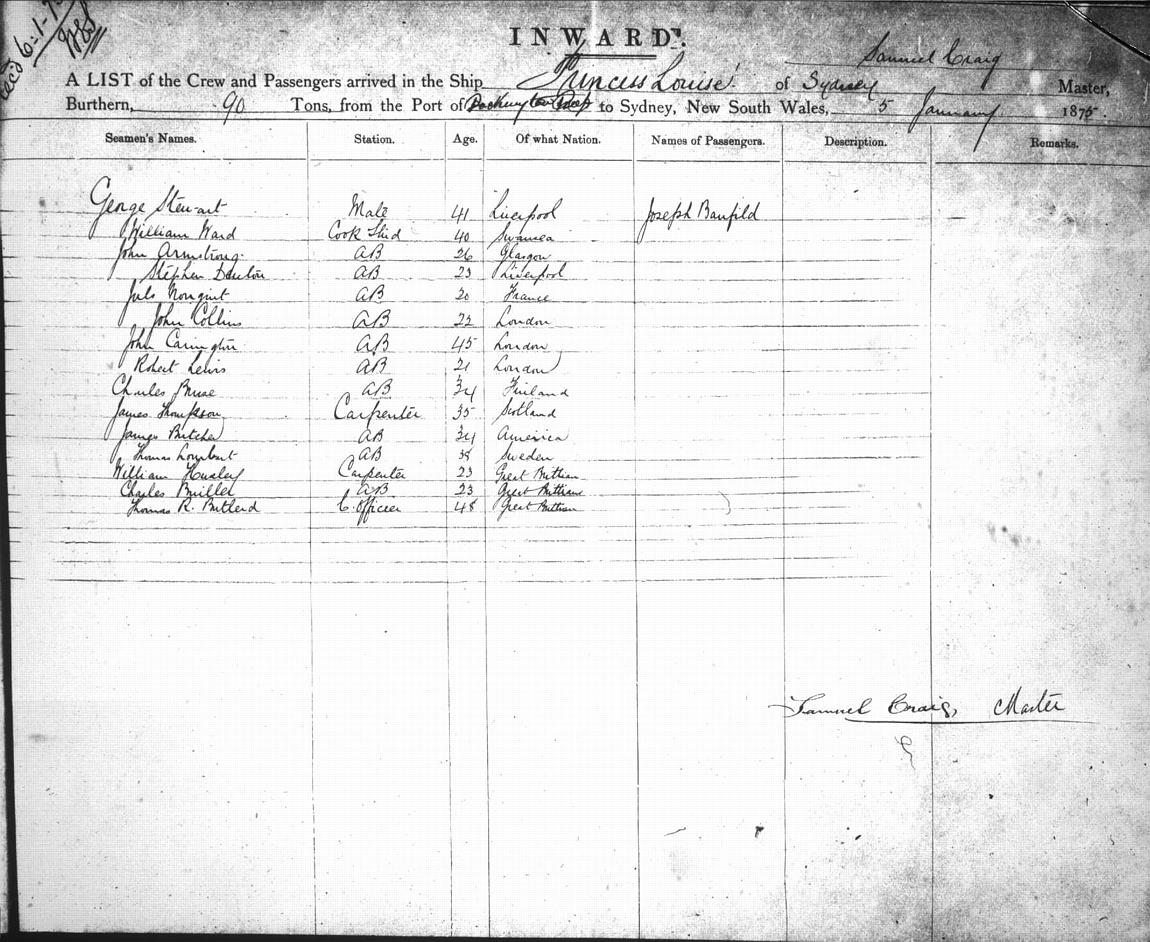 Rec'd 6-1-75
INWARD.
Samuel Craig
A LIST of the Crew and Passengers arrived in the Ship Princess Louise of Sydney Master,
Burthern, 90 Tons, from the Port of to Sydney, New South Wales, 5 January 1875.
Seamen's Names. Station. Age. Of what Nation. Names of Passengers. Description. Remarks.
George Stewart Mate 41 Liverpool Joseph Banfild
William Ward Cook Stud 40 Swansea
John Armstrong. AB 26 Glasgow
Stephen AB 23 Liverpool
Juls AB 20 France
John Collins AB 22 London
John Carington AB 45 London
Robert Lewis AB 21 London
Charles AB 34 Finland
James Thompson Carpenter 35 Scotland
James Butcher AB 34 America
Thomas AB 38 Sweden
William Carpenter 23 Great Brittian
Charles AB 23 Great Brittian
Thomas R. C. Officer 48 Great Brittian
Samuel Craig, Master